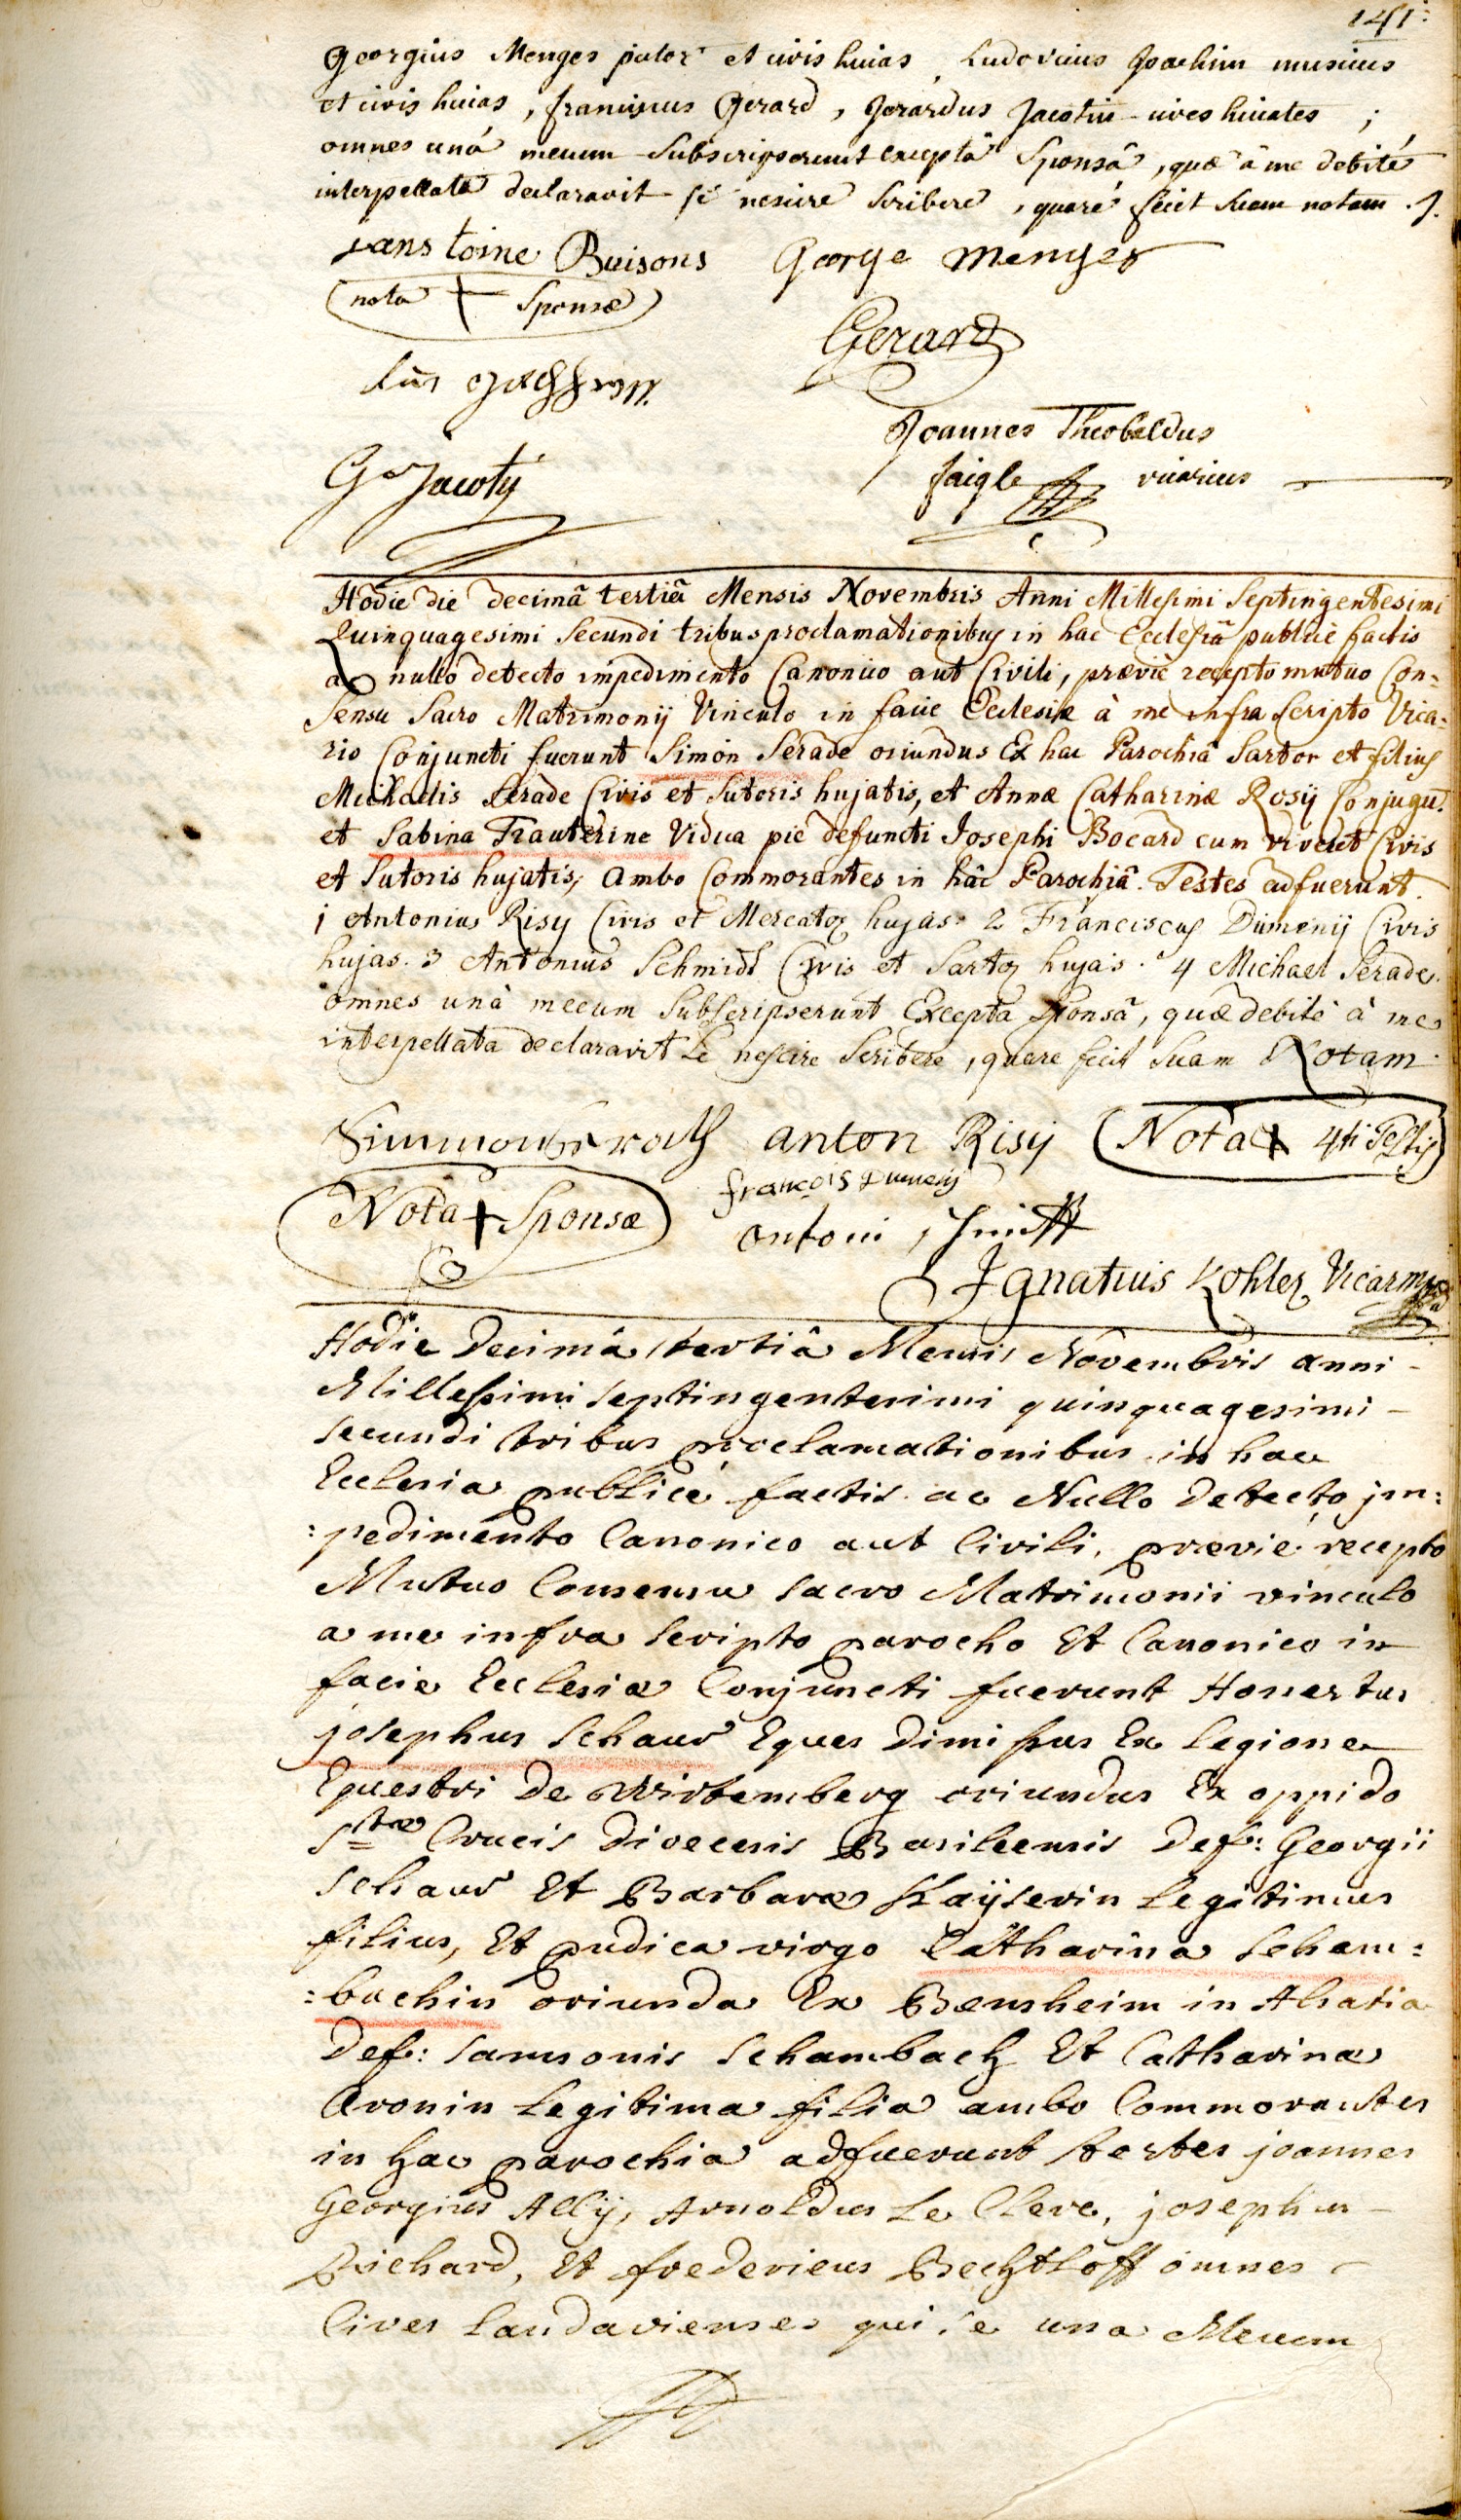 141:
Georgius Menges pistor et civis huias, Ludovicus Joachim musicus
et civis huias, franciscus Gerard, Gerardus Jacotin cives huiates;
omnes unà mecum subscripserunt exceptâ Sponsâ, quæ à me debitè
interpellata declaravit se nescire scribere, quarè fecit suam notam.
jans toine Buisons George Menges
nota + Sponsæ
Gerard
Joannes Theobaldus
G Jacoty
faigle vicarius
Hodie die decimâ tertiâ Mensis Novembris Anni Millesimi Septingentesimi
Quinquagesimi Secundi tribus proclamationibus in hac Ecclesiâ publicè factis
ac nullo detecto impedimento Canonico aut Civili, præviè recepto mutuo Con=
sensu Sacro Matrimonij Vinculo in facie Ecclesiæ à me infra scripto Vica=
rio Conjuncti fuerunt Simon Serade oriundus Ex hac Parochiâ Sartor et filius
Michaelis Serade Civis et Sutoris hujatis, et Annæ Catharinæ Rosij Conjugū.
et Sabina Trauterine Vidua piè defuncti Josephi Bocard cum viveret Civis
et Sutoris hujatis, ambo Commorantes in hâc Parochiâ. Testes adfuerunt.
1 Antonius Risy Civis et Mercator hujas. 2 Franciscus Dumenij Civis
hujas. 3 Antonius Schmidt Civis et Sartor hujas. 4 Michael Serade.
omnes unà mecum Subscripserunt Excepta Sponsâ, quæ debitè à me
interpellata declaravit Se nescire Scribere, quare fecit Suam Notam.
anton Risij Nota + 4ti Testis
françois Dumenij
Nota + Sponsæ
antoni
Ignatius Kohler Vicarius
Hodie Decimâ tertiâ Mensis Novembris anni
Millesimi septingentesimi quinquagesimi
secundi tribus proclamationibus in hac
Ecclesia publicè factis ac Nullo detecto jm:
:pedimento Canonico aut Civili, præviè recepto
Mutuo Consensu sacro Matrimonii vinculo
a me infra scripto parocho Et Canonico in
facie Ecclesiæ Conjuncti fuerunt Honestus
josephus Schaur Eques Dimissus Ex legione
Equestri De Wirtemberg oriundus Ex oppido
Stæ Crucis Diœcesis Basileensis Def: Georgii
Schaur Et Barbaræ Kaÿserin legitimus
filius, Et pudica virgo Catharina Scham:
:bachin oriunda Ex Bensheim in Alsatia
Def: Samsonis Schambach Et Catharinæ
Aronin legitima filia ambo Commorantes
in hac parochia adfuerunt testes joannes
Georgius Allÿ, Arnoldus Le Clere, josephus
Richard, Et fredericus Bechtloff omnes
Cives Landavienses qui se una Mecum